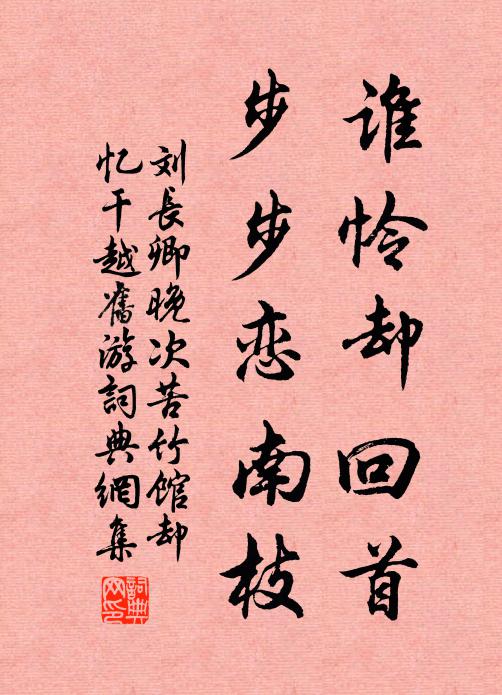 谁怜却回首
步步恋南枝
刘長卿晚次苦竹馆却
忆干越舊游詞典網集
詞典网印